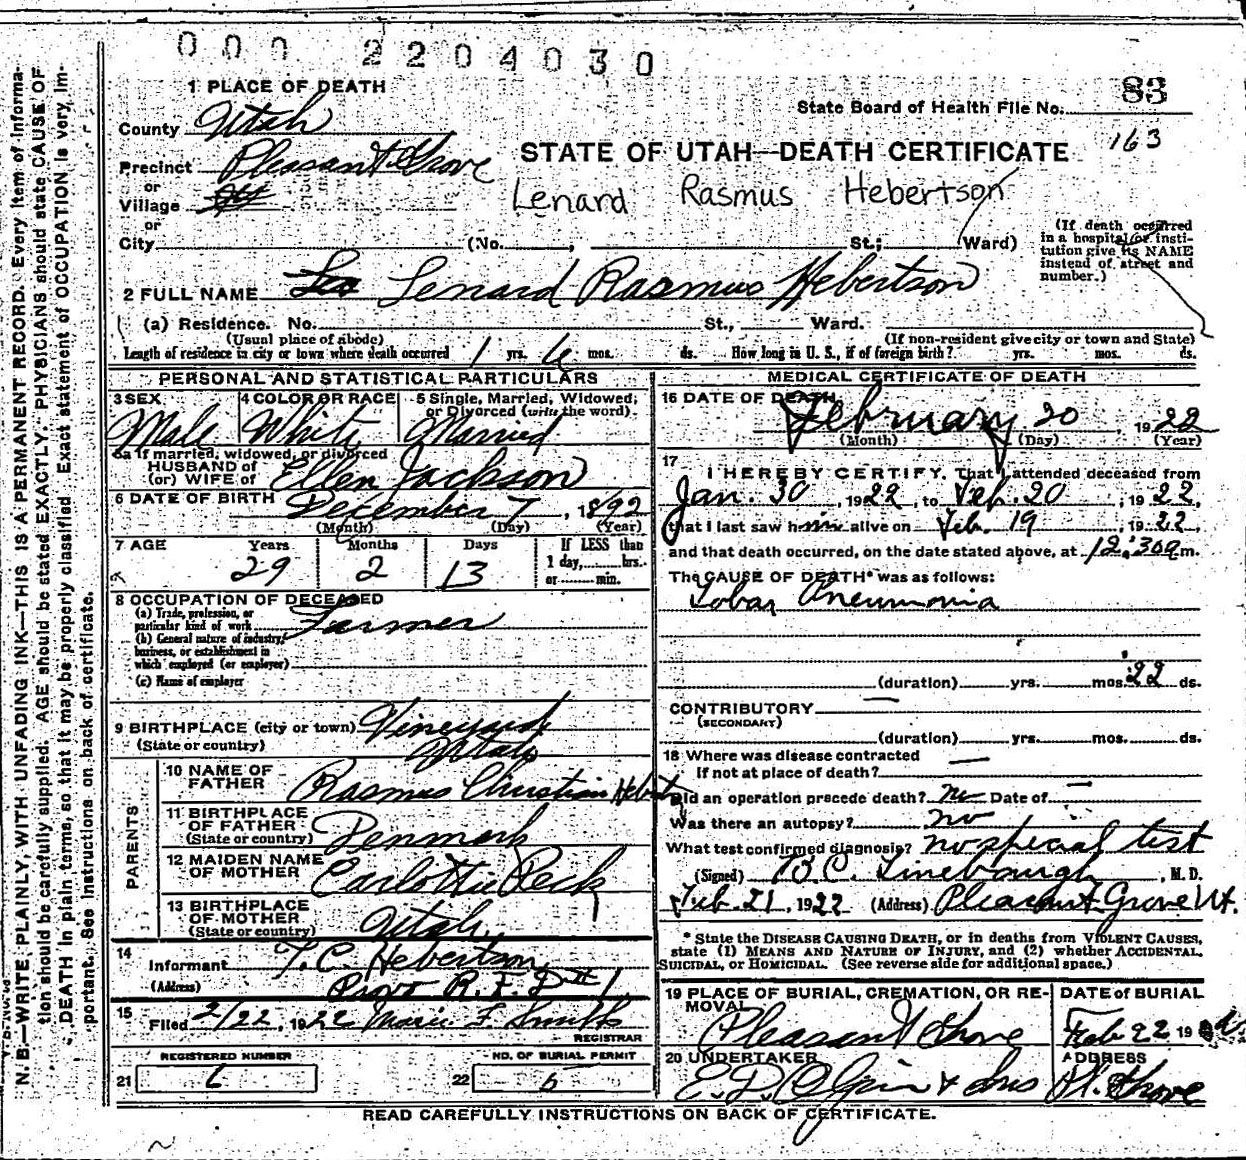 000 2204030
1 PLACE OF DEATH
State Board of Health File No. 83
County Utah
163
Precinct Pleasant Grove
STATE OF UTAH—DEATH CERTIFICATE
or
Village
Lenard Rasmus Hebertson
or
City (No. , St.; Ward)
(If death occurred in a hospital or institution give its NAME instead of street and number.)
2 FULL NAME Leo Lenard Rasmus Hebertson
(a) Residence. No. St., Ward.
(Usual place of abode) (If non-resident give city or town and State)
Length of residence in city or town where death occurred 1 yrs. 6 mos. ds. How long in U. S., if of foreign birth? yrs. mos. ds.
PERSONAL AND STATISTICAL PARTICULARS
3 SEX Male
4 COLOR OR RACE White
5 Single, Married, Widowed, or Divorced (write the word) Married
5a If married, widowed, or divorced
HUSBAND of
(or) WIFE of Ellen Jackson
6 DATE OF BIRTH December 7, 1892
(Month) (Day) (Year)
7 AGE Years Months Days If LESS than
1 day, hrs.
or min.
29 2 13
8 OCCUPATION OF DECEASED
(a) Trade, profession, or
particular kind of work Farmer
(b) General nature of industry,
business, or establishment in
which employed (or employer)
(c) Name of employer
9 BIRTHPLACE (city or town) Vineyard
(State or country) Utah
PARENTS
10 NAME OF
FATHER Rasmus Christian
11 BIRTHPLACE
OF FATHER
(State or country) Denmark
12 MAIDEN NAME
OF MOTHER
13 BIRTHPLACE
OF MOTHER
(State or country) Utah
14
Informant T. C. Hebertson
(Address) Provo R.F.D # 1
15
Filed 2/22, 1922 Marie F. Smith
REGISTRAR
REGISTERED NUMBER
21 6
NO. OF BURIAL PERMIT
22 5
MEDICAL CERTIFICATE OF DEATH
16 DATE OF DEATH
February 20, 1922
(Month) (Day) (Year)
17
I HEREBY CERTIFY, That I attended deceased from
Jan. 30, 1922, to Feb. 20, 1922,
that I last saw him alive on Feb. 19, 1922
and that death occurred, on the date stated above, at 12:30a m.
The CAUSE OF DEATH* was as follows:
Lobar Pneumonia
(duration) yrs. mos. 22 ds.
CONTRIBUTORY —
(SECONDARY)
(duration) yrs. mos. ds.
18 Where was disease contracted
If not at place of death? —
Did an operation precede death? no Date of —
Was there an autopsy? no
What test confirmed diagnosis? no special test
(Signed) B.C. Linebaugh, M. D.
Feb. 21, 1922 (Address) Pleasant Grove Ut.
* State the DISEASE CAUSING DEATH, or in deaths from VIOLENT CAUSES,
state (1) MEANS AND NATURE OF INJURY, and (2) whether ACCIDENTAL,
SUICIDAL, or HOMICIDAL. (See reverse side for additional space.)
19 PLACE OF BURIAL, CREMATION, OR RE-
MOVAL
Pleasant Grove
DATE of BURIAL
Feb 22 19
20 UNDERTAKER
E. D. & Sons
ADDRESS
Pl. Grove
READ CAREFULLY INSTRUCTIONS ON BACK OF CERTIFICATE.
N. B.—WRITE PLAINLY, WITH UNFADING INK—THIS IS A PERMANENT RECORD. Every item of informa-
tion should be carefully supplied. AGE should be stated EXACTLY. PHYSICIANS should state CAUSE OF
DEATH in plain terms, so that it may be properly classified. Exact statement of OCCUPATION is very im-
portant. See instructions on back of certificate.